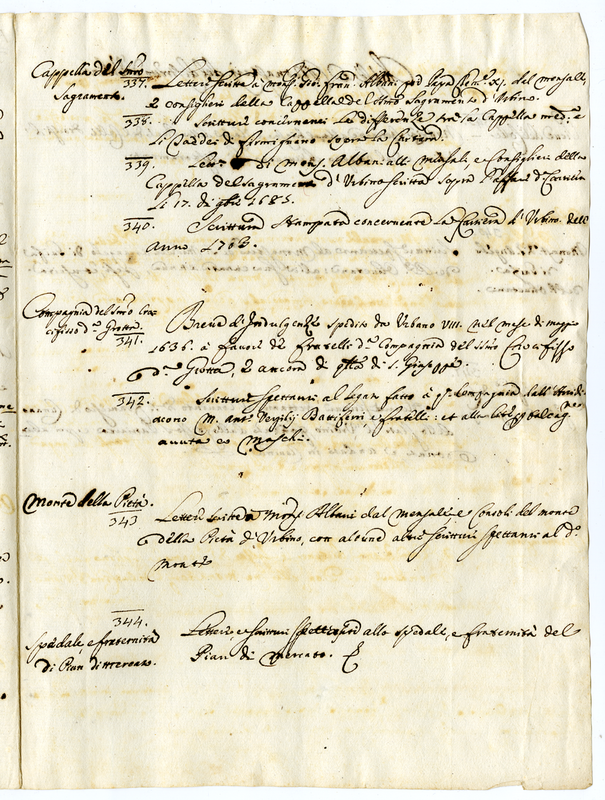 Cappella del Smo Sagramento.
337. Lettere scritte a Mons. Gio. Fran. Albani poi Papa dal mensali,
e consiglieri della Cappella del Smo Sagramento d'Urbino.
338. Scritture concernenti le differenze tra la Cappella med.a e
li di Fermignano sopra la Cartiera.
339. di Mons. Albani alli Mensali, e Consiglieri della
Cappella del Sagramento d'Urbino scritta sopra l'affare di
li 17. di 9bre 1685.
340. Scrittura stampata concernente la Cartiera d'Urbino dell'
Anno 1702.
Compagnia del Smo Crocifisso d.a Grotta.
341. Breve d'Indulgenze spedito da Urbano VIII. nel mese di maggio
1636. a favore de fratelli d.a Compagnia del Smo Crocifisso
d.a Grotta, e ancora di di S. Giuseppe.
342. Scritture spettanti al legato fatto a Compagnia dall'Arcidi-
acono M. Ant. Vergilij e fratelli: et alla
Monte della Pietà.
343 Lettere scritte a Mons. Albani dal Mensali, e Consoli del monte
della Pietà d'Urbino, con alcune altre scritture spettanti al d.o
Monte
344.
Spedale, e fraternità di Pian di Mercato.
Lettere, e scritture spettanti allo spedale, e fraternità del
Pian di Mercato.